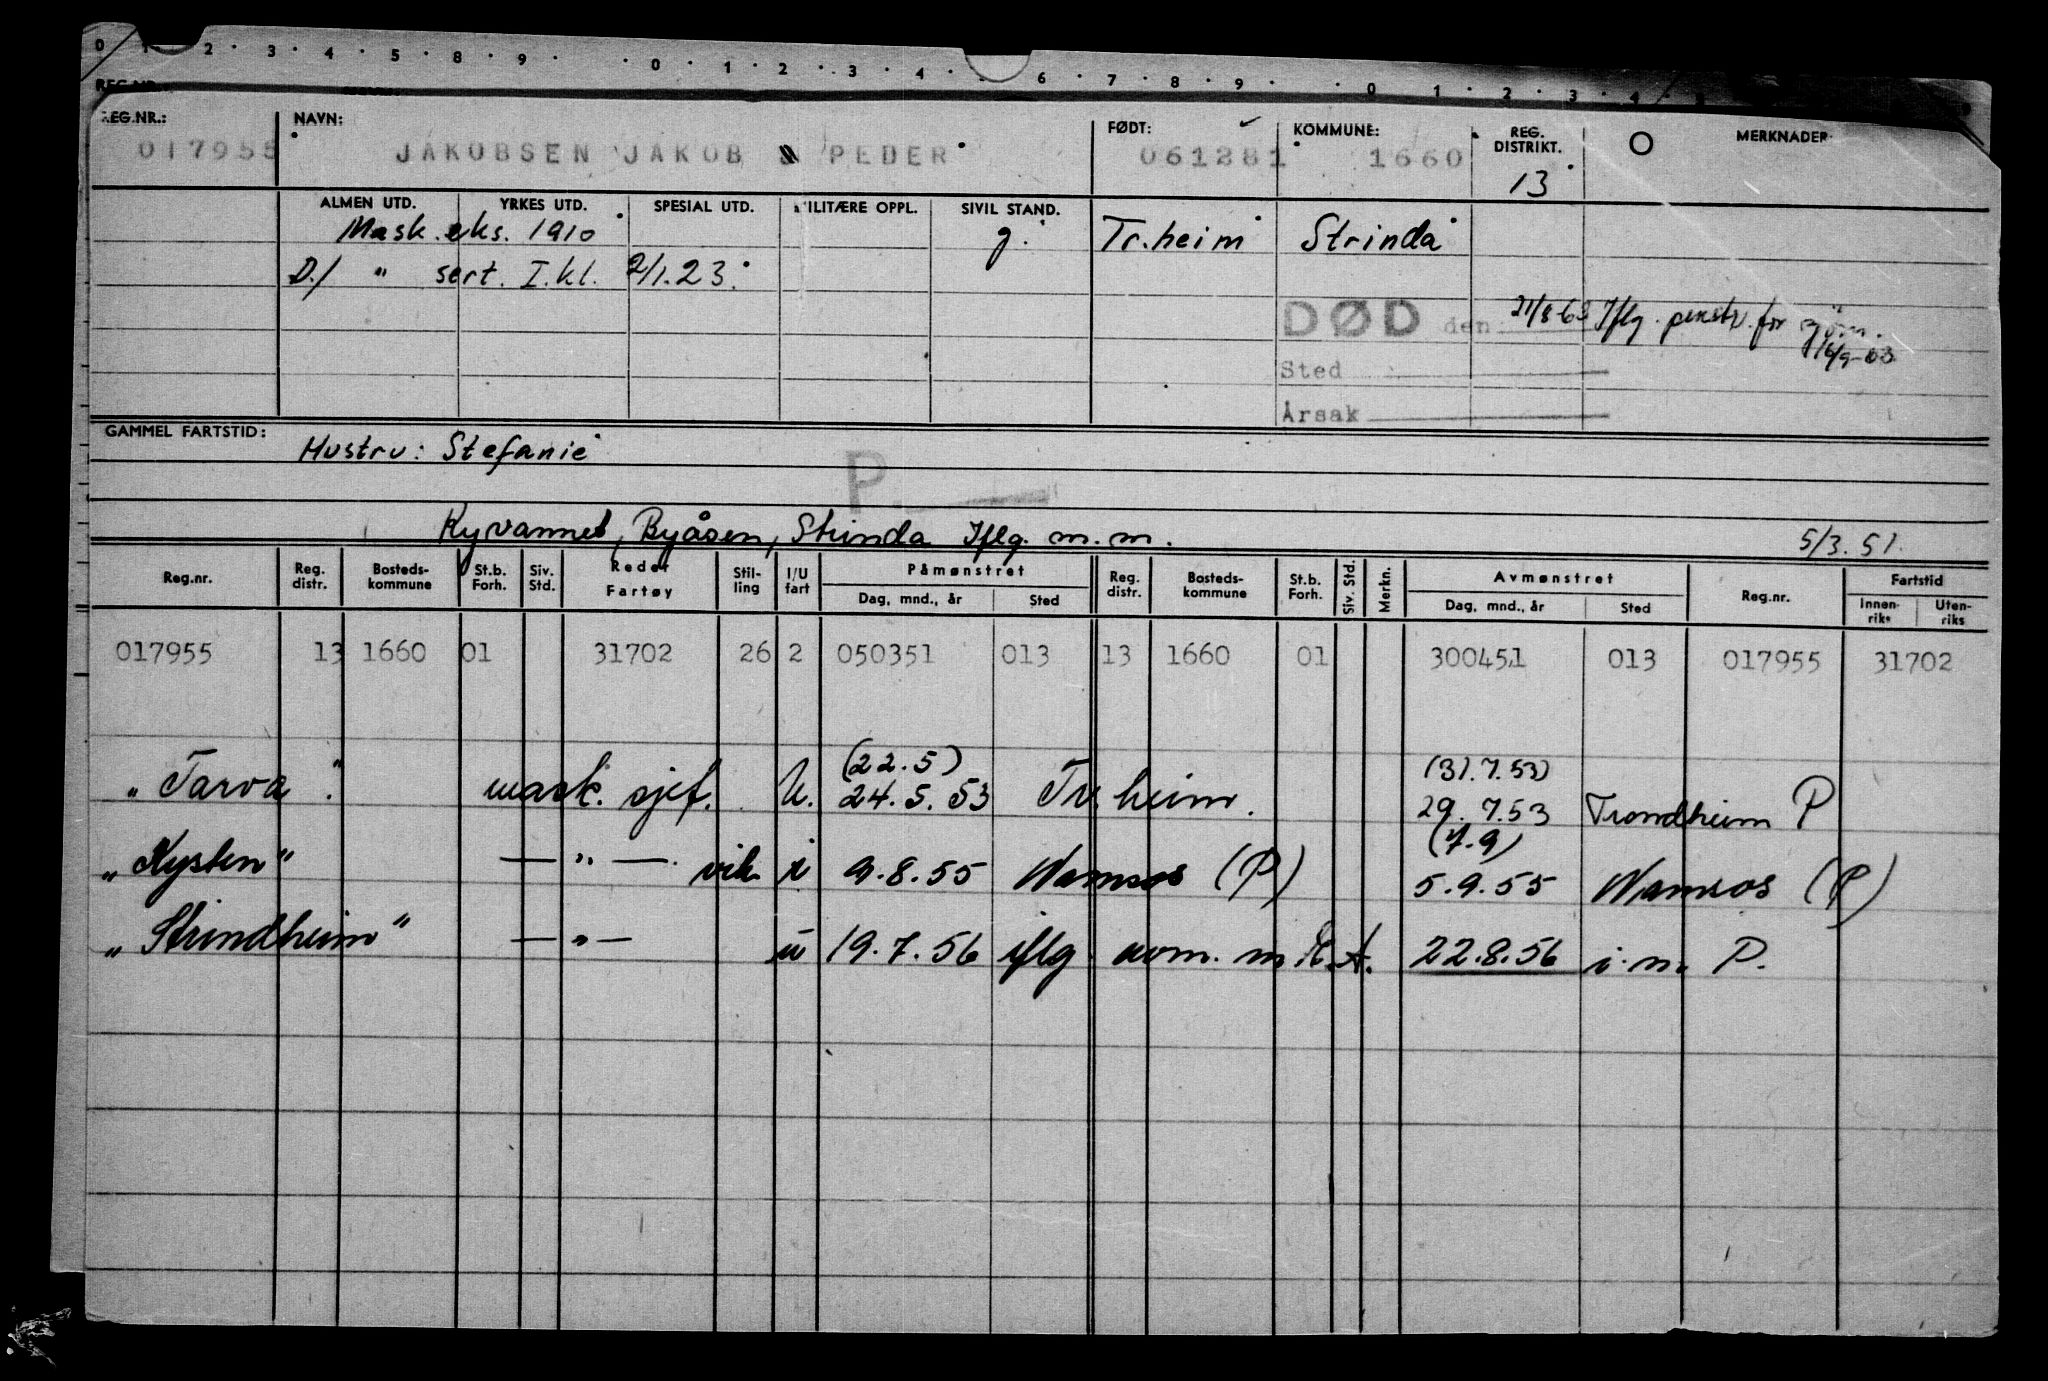 0 1 · 2 · 3 · 4 · 5 · 8 · 9 · · 0 · 1 · 2 · 3 · 4 · 6 · 7 · 8 · 9 · · 0 · 1 · 2 · 3 · 4
REG.NR.: NAVN: FØDT: KOMMUNE: REG. DISTRIKT. O MERKNADER
017955 JAKOBSEN JAKOB PEDER 061281 1660
13
ALMEN UTD. YRKES UTD. SPESIAL UTD. MILITÆRE OPPL. SIVIL STAND.
Mask. eks. 1910 g. Tr.heim Strinda
D./ " sert. I.kl. 2/1.23.
DØD den: 21/8 63 Iflg. penstr. for sjøm.
16/9-63
Sted
Årsak
GAMMEL FARTSTID:
Hustru: Stefanie
P.
Kyvannet, Byåsen, Strinda Iflg. m.m. 5/3.51.
Reg.nr. Reg. distr. Bosteds-kommune St.b. Forh. Siv. Std. Reder Fartøy Stil-ling I/U fart Påmønstret Reg. distr. Bosteds-kommune St.b. Forh. Siv. Std. Merkn. Avmønstret Reg.nr. Fartstid
Dag, mnd., år Sted Dag, mnd., år Sted Innen-riks Uten-riks
017955 13 1660 01 31702 26 2 050351 013 13 1660 01 300451 013 017955 31702
(22.5) (31.7.53)
"Tarva". mask. sjef. U. 24.5.53 Tr.heim. 29.7.53 Trondheim P
(7.9)
"Kysten" — " — vik i 9.8.55 Namsos (P) 5.9.55 Namsos (P)
"Strindheim" — " — u 19.7.56 iflg avm. m R.A. 22.8.56 i.m. P.